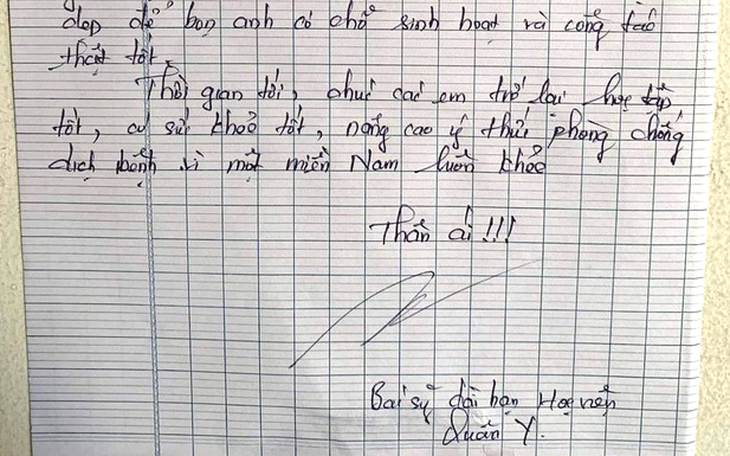 đẹp để bọn anh có chỗ sinh hoạt và công tác
thật tốt.
Thời gian tới, chúc các em trở lại học tập
tốt, có sức khoẻ tốt, nâng cao ý thức phòng chống
dịch bệnh vì một miền Nam luôn khỏe
Thân ái !!!
Bác sỹ dài hạn Học viện
Quân Y.